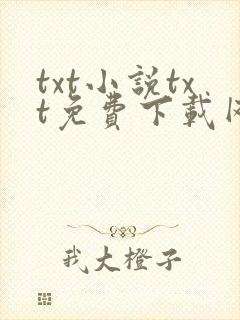 txt小説tx
t免費下載
我大橙子